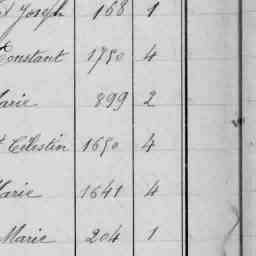 Joseph 168 1
Constant 1750 4
Marie 899 2
Célestin 1650 4
Marie 1641 4
Marie 204 1